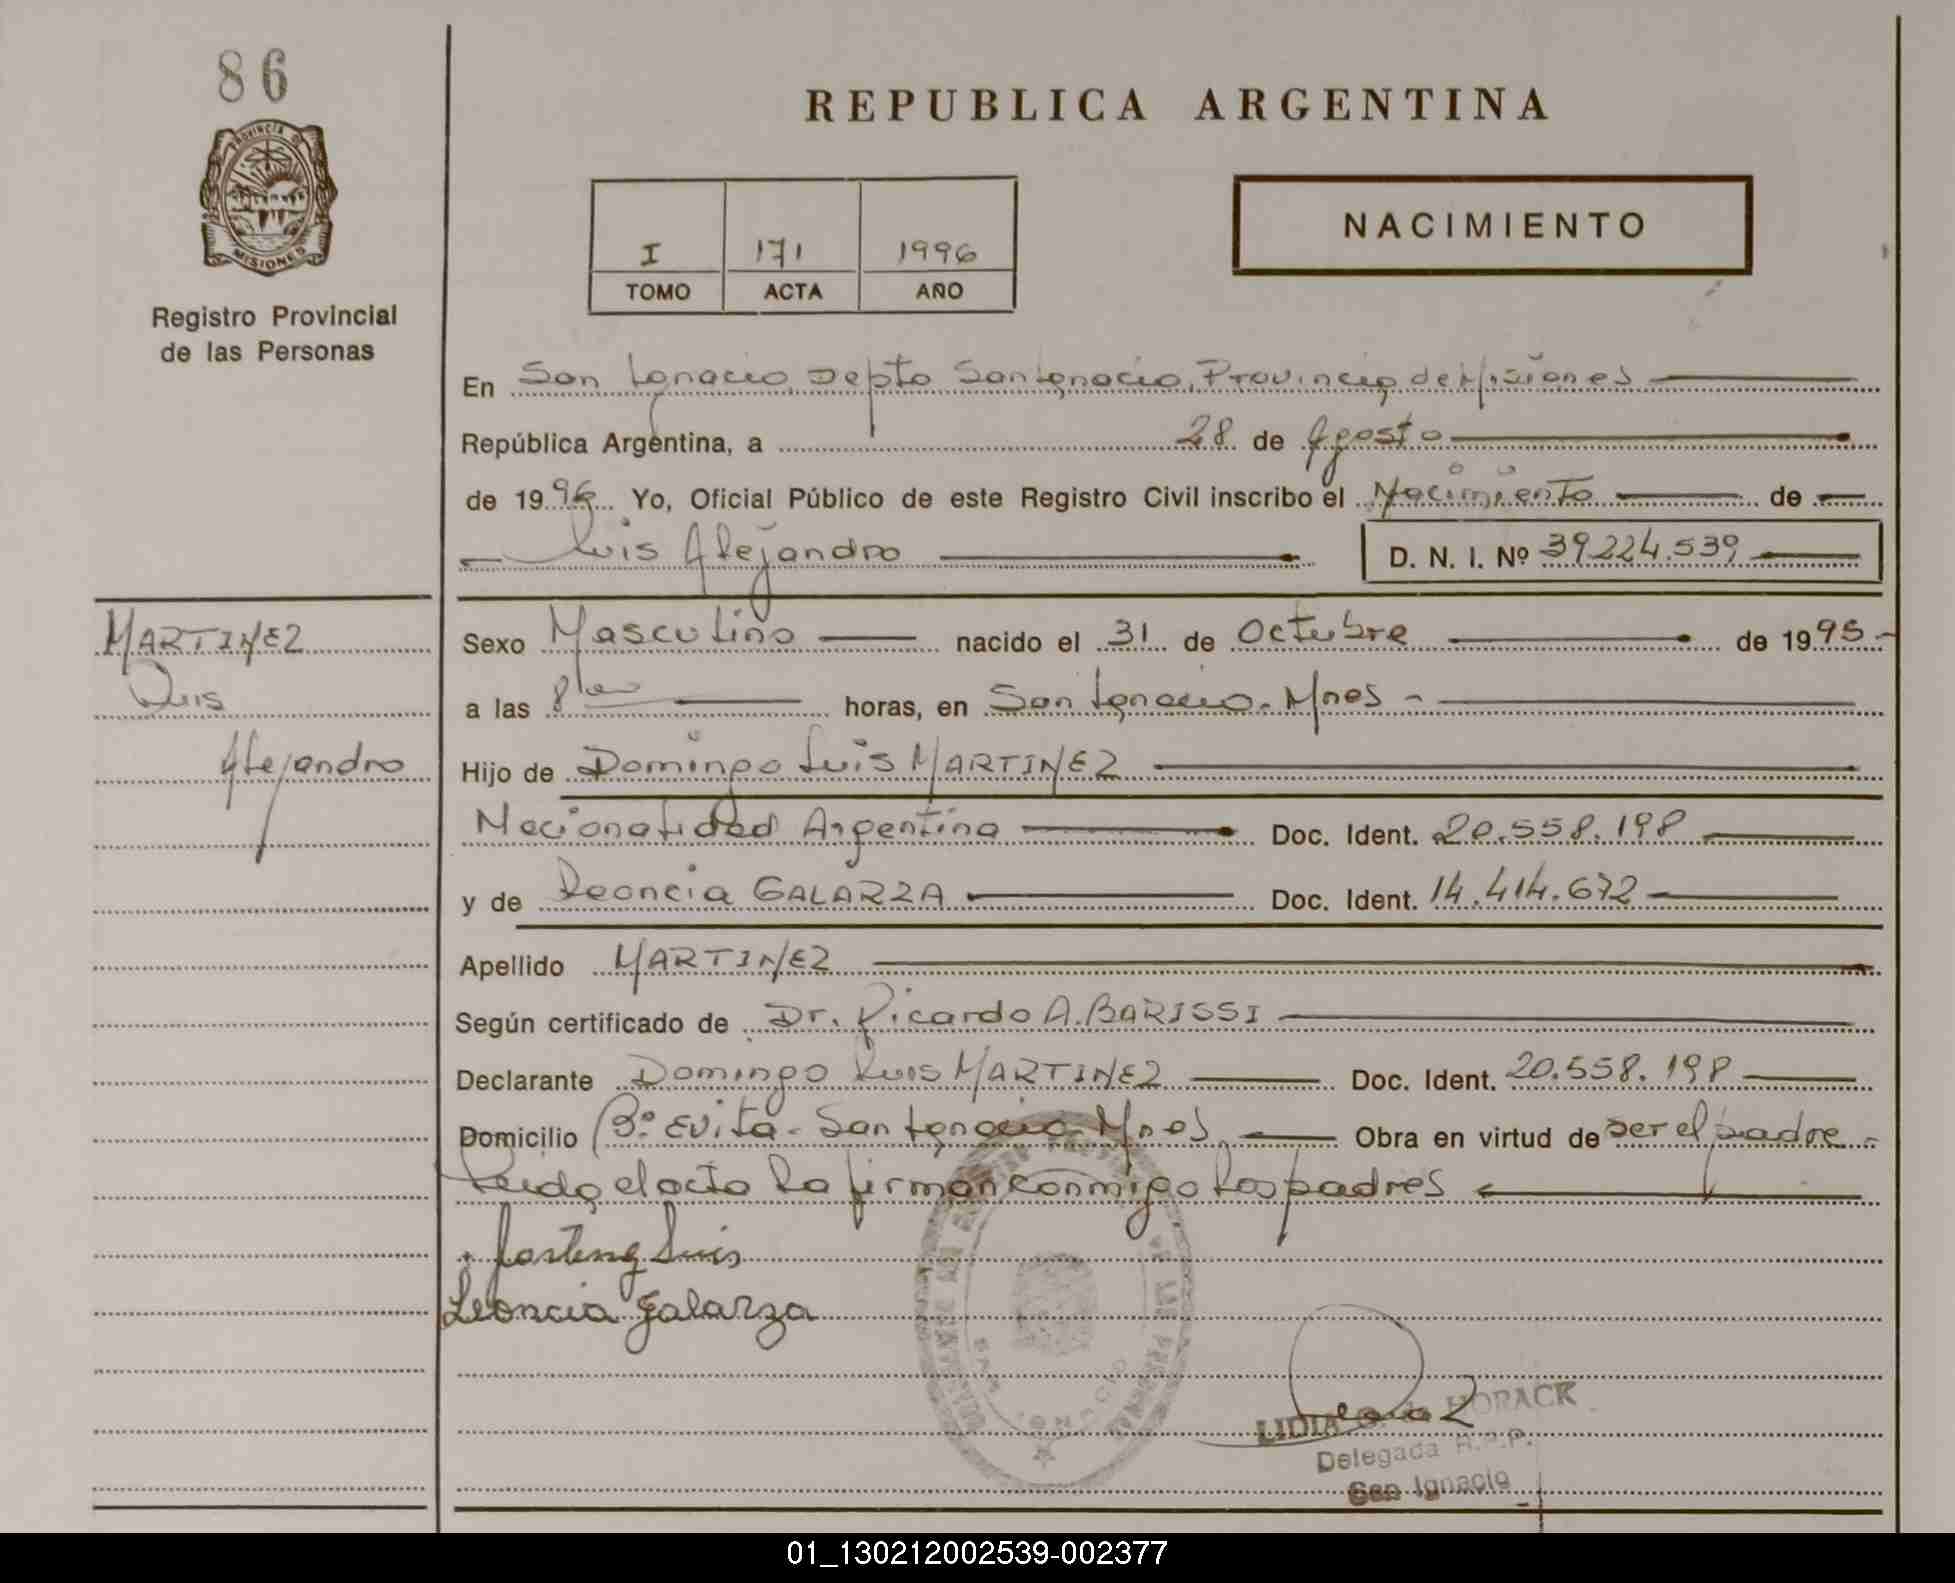 86
PROVINCIA DE
MISIONES
Registro Provincial
de las Personas
REPUBLICA ARGENTINA
I 171 1996
TOMO ACTA AÑO
NACIMIENTO
En San Ignacio, Depto San Ignacio, Provincia de Misiones
República Argentina, a 28 de Agosto
de 1996 Yo, Oficial Público de este Registro Civil inscribo el Nacimiento de
Luis Alejandro D. N. I. Nº 39.224.539
MARTINEZ
Luis
Alejandro
Sexo Masculino nacido el 31 de Octubre de 1995
a las 8 horas, en San Ignacio - Mnes -
Hijo de Domingo Luis MARTINEZ
Nacionalidad Argentina Doc. Ident. 20.558.198
y de Leoncia GALARZA Doc. Ident. 14.414.672
Apellido MARTINEZ
Según certificado de Dr. Ricardo A. BARISSI
Declarante Domingo Luis MARTINEZ Doc. Ident. 20.558.198
Domicilio Bº Evita - San Ignacio - Mnes Obra en virtud de ser el padre -
Leida el acta la firman conmigo los padres
Luis
Leoncia Galarza
SAN IGNACIO
LIDIA HORACK
Delegada R.P.P.
San Ignacio
01_130212002539-002377